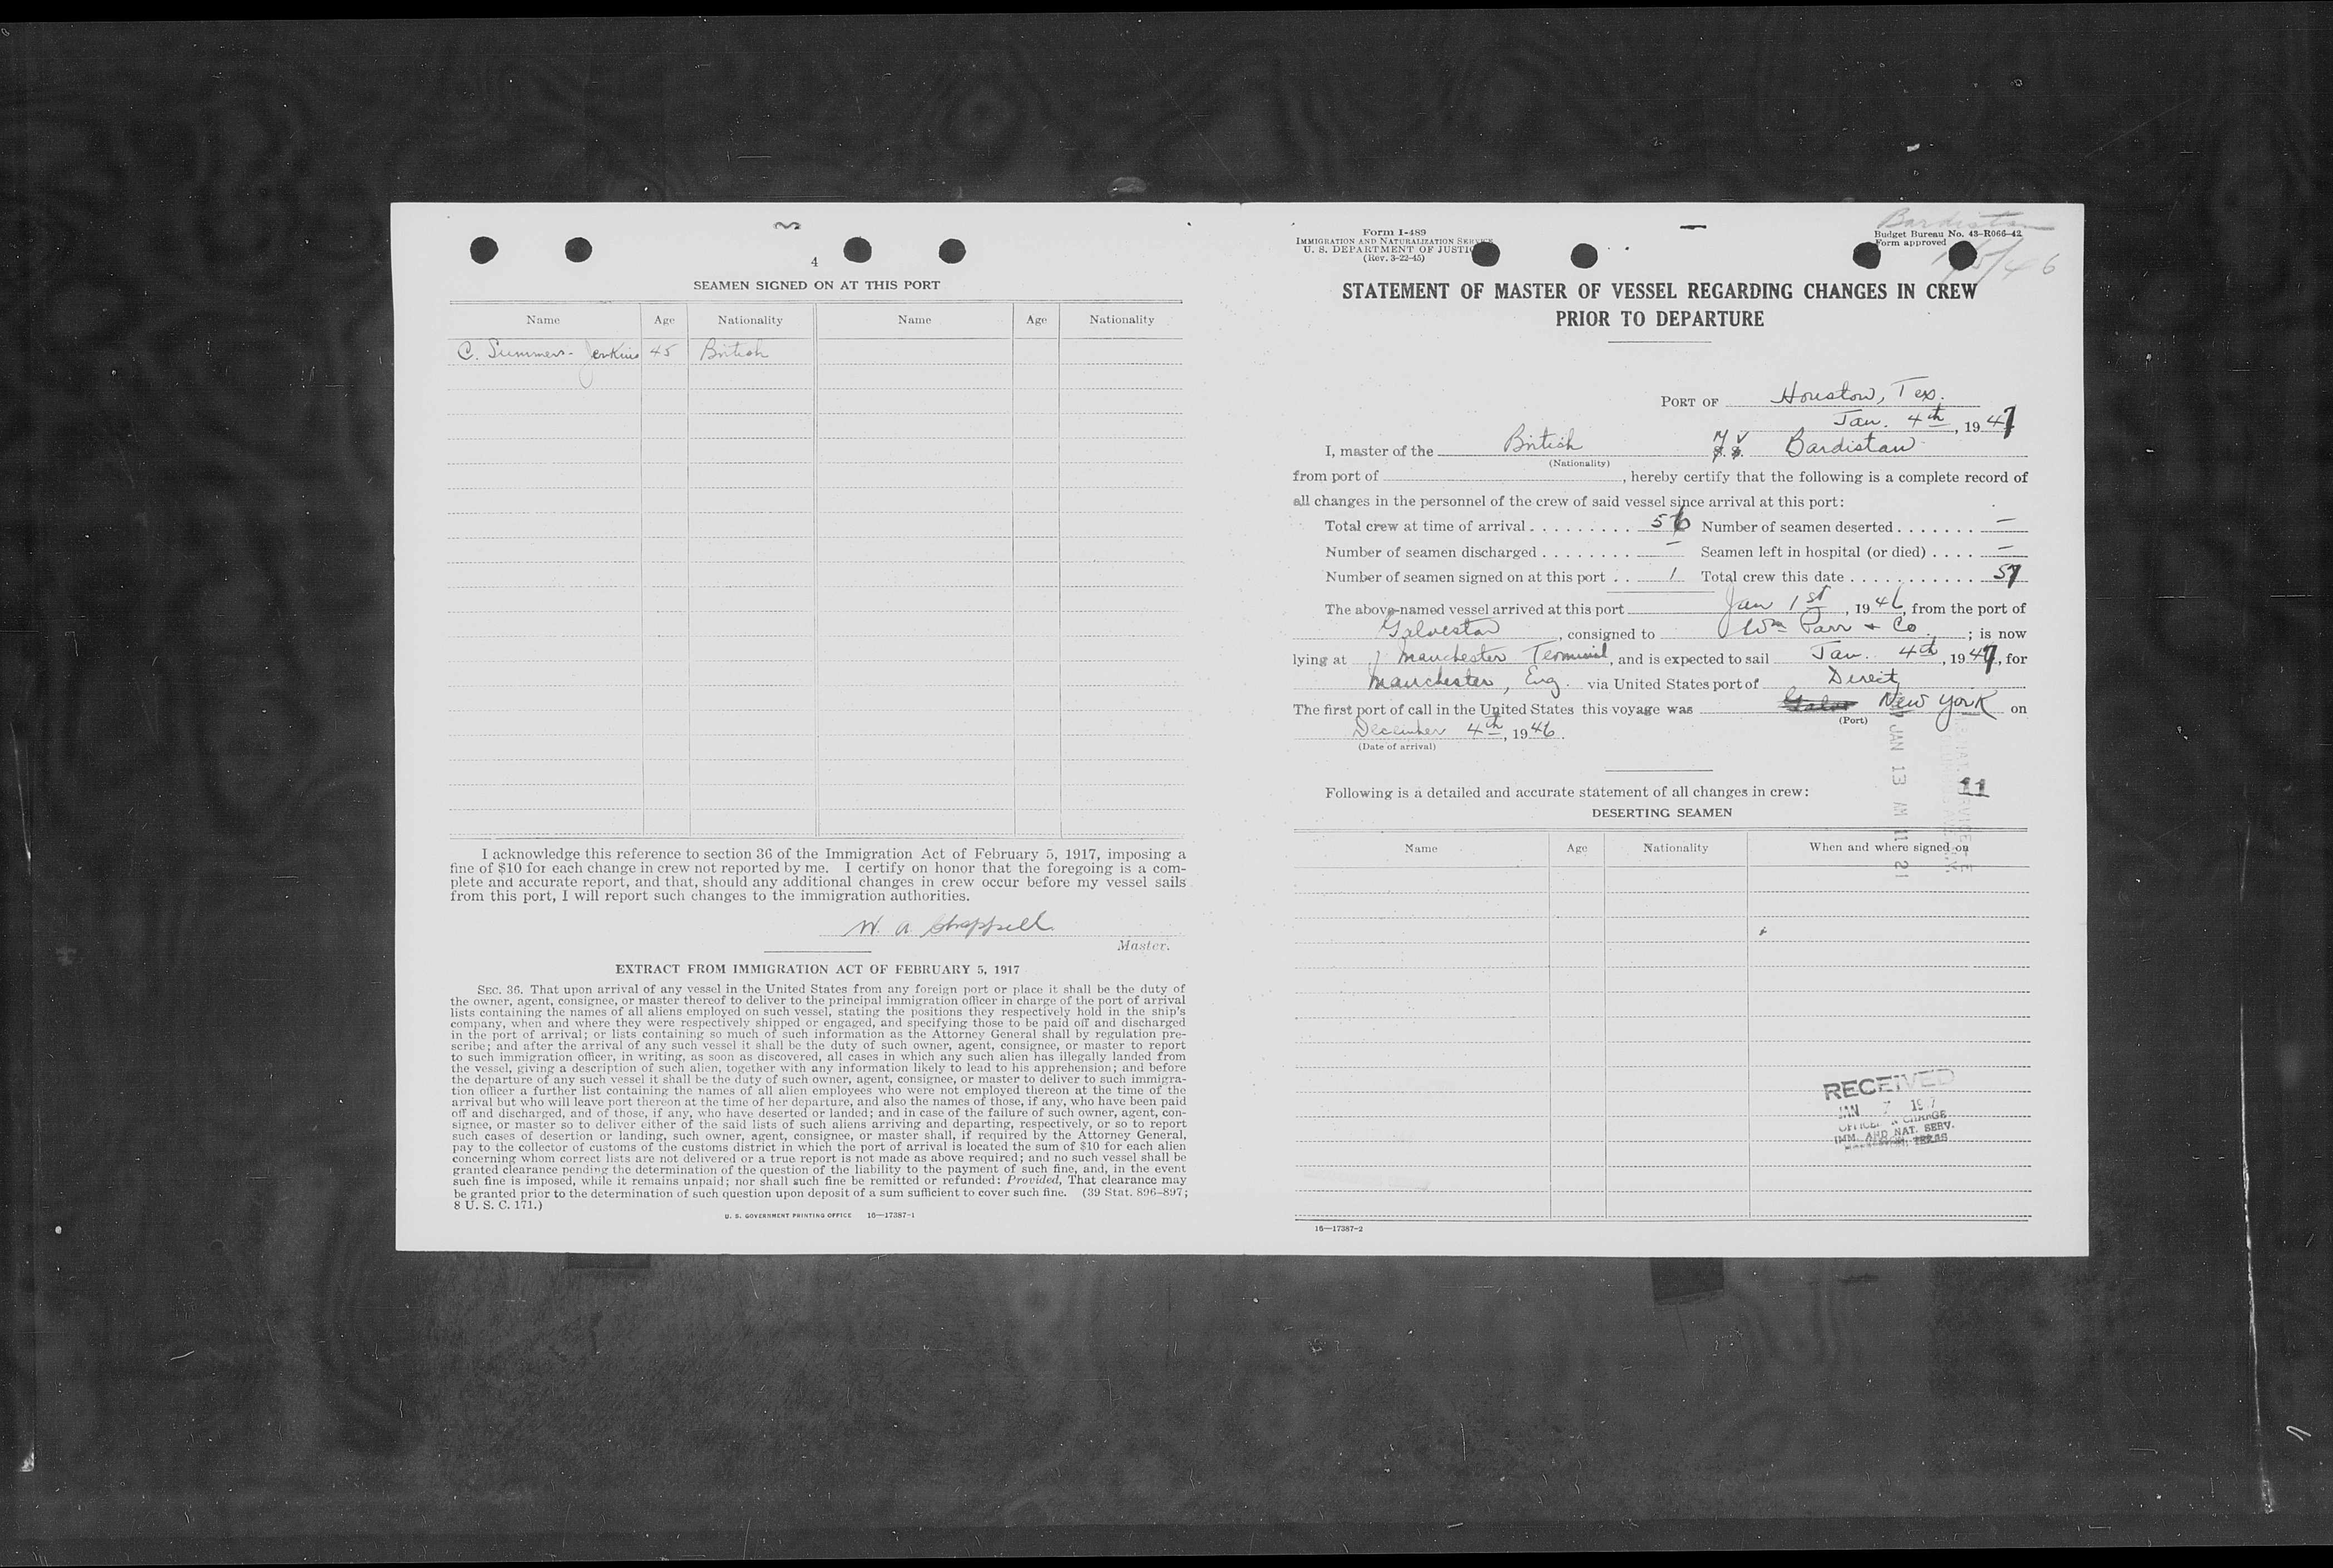 4
SEAMEN SIGNED ON AT THIS PORT
Name Age Nationality Name Age Nationality
C. Summers-Jenkins 45 British
I acknowledge this reference to section 36 of the Immigration Act of February 5, 1917, imposing a
fine of $10 for each change in crew not reported by me. I certify on honor that the foregoing is a com-
plete and accurate report, and that, should any additional changes in crew occur before my vessel sails
from this port, I will report such changes to the immigration authorities.
W. A.
Master.
EXTRACT FROM IMMIGRATION ACT OF FEBRUARY 5, 1917
SEC. 36. That upon arrival of any vessel in the United States from any foreign port or place it shall be the duty of
the owner, agent, consignee, or master thereof to deliver to the principal immigration officer in charge of the port of arrival
lists containing the names of all aliens employed on such vessel, stating the positions they respectively hold in the ship's
company, when and where they were respectively shipped or engaged, and specifying those to be paid off and discharged
in the port of arrival; or lists containing so much of such information as the Attorney General shall by regulation pre-
scribe; and after the arrival of any such vessel it shall be the duty of such owner, agent, consignee, or master to report
to such immigration officer, in writing, as soon as discovered, all cases in which any such alien has illegally landed from
the vessel, giving a description of such alien, together with any information likely to lead to his apprehension; and before
the departure of any such vessel it shall be the duty of such owner, agent, consignee, or master to deliver to such immigra-
tion officer a further list containing the names of all alien employees who were not employed thereon at the time of the
arrival but who will leave port thereon at the time of her departure, and also the names of those, if any, who have been paid
off and discharged, and of those, if any, who have deserted or landed; and in case of the failure of such owner, agent, con-
signee, or master so to deliver either of the said lists of such aliens arriving and departing, respectively, or so to report
such cases of desertion or landing, such owner, agent, consignee, or master shall, if required by the Attorney General,
pay to the collector of customs of the customs district in which the port of arrival is located the sum of $10 for each alien
concerning whom correct lists are not delivered or a true report is not made as above required; and no such vessel shall be
granted clearance pending the determination of the question of the liability to the payment of such fine, and, in the event
such fine is imposed, while it remains unpaid; nor shall such fine be remitted or refunded: Provided, That clearance may
be granted prior to the determination of such question upon deposit of a sum sufficient to cover such fine. (39 Stat. 896-897;
8 U. S. C. 171.)
U. S. GOVERNMENT PRINTING OFFICE 16—17387-1
Form I-489
IMMIGRATION AND NATURALIZATION SERVICE
U. S. DEPARTMENT OF JUSTICE
(Rev. 3-22-45)
Bardistan
Budget Bureau No. 43-R066-42
Form approved
STATEMENT OF MASTER OF VESSEL REGARDING CHANGES IN CREW
PRIOR TO DEPARTURE
PORT OF Houston, Tex.
Jan. 4th, 1947
I, master of the British M V S. S. Bardistan
(Nationality)
from port of , hereby certify that the following is a complete record of
all changes in the personnel of the crew of said vessel since arrival at this port:
Total crew at time of arrival . . . . . . . . . 56 Number of seamen deserted . . . . . . . —
Number of seamen discharged . . . . . . . . — Seamen left in hospital (or died) . . . . —
Number of seamen signed on at this port . . 1 Total crew this date . . . . . . . . . . . . 57
The above-named vessel arrived at this port Jan 1st, 1946, from the port of
Galveston, consigned to Wm Parr & Co.; is now
lying at Manchester Terminal, and is expected to sail Jan. 4th, 1947, for
Manchester, Eng. via United States port of Direct
The first port of call in the United States this voyage was New York on
(Port)
December 4th, 1946.
(Date of arrival)
JAN 13 AM 11 21
11
Following is a detailed and accurate statement of all changes in crew:
DESERTING SEAMEN
Name Age Nationality When and where signed on
RECEIVED
JAN 7 1947
OFFICER IN CHARGE
IMM. AND NAT. SERV.
TEXAS
16—17387-2